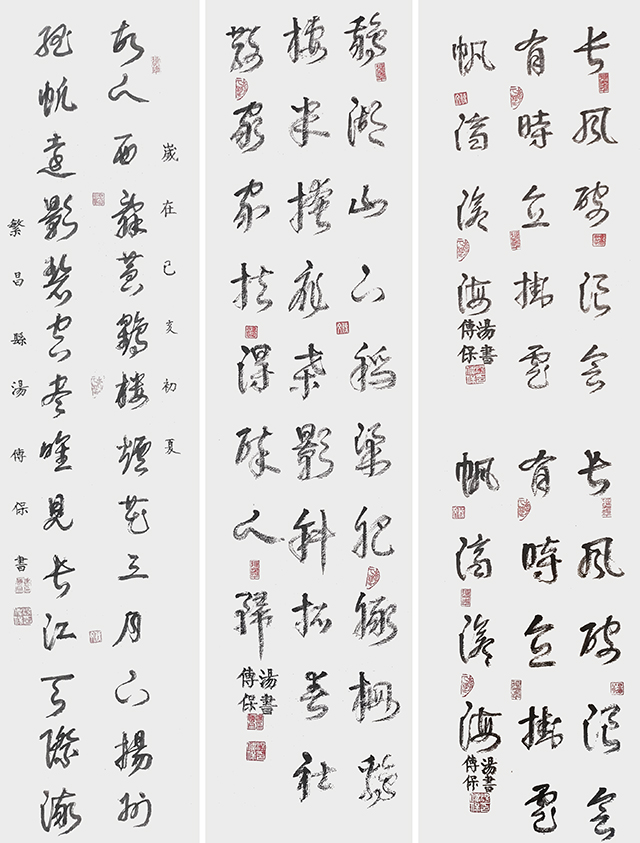 長風破浪會
有時直掛雲
帆濟滄海
湯傳保書
長風破浪會
有時直掛雲
帆濟滄海
湯傳保書
鵝湖山下稻粱肥豚柵雞
棲半掩扉桑影斜柘春社
散家家扶得醉人歸
湯傳保書
歲在己亥初夏
故人西辭黃鶴樓煙花三月下揚州
孤帆遠影碧空盡唯見長江天際流
繁昌縣湯傳保書